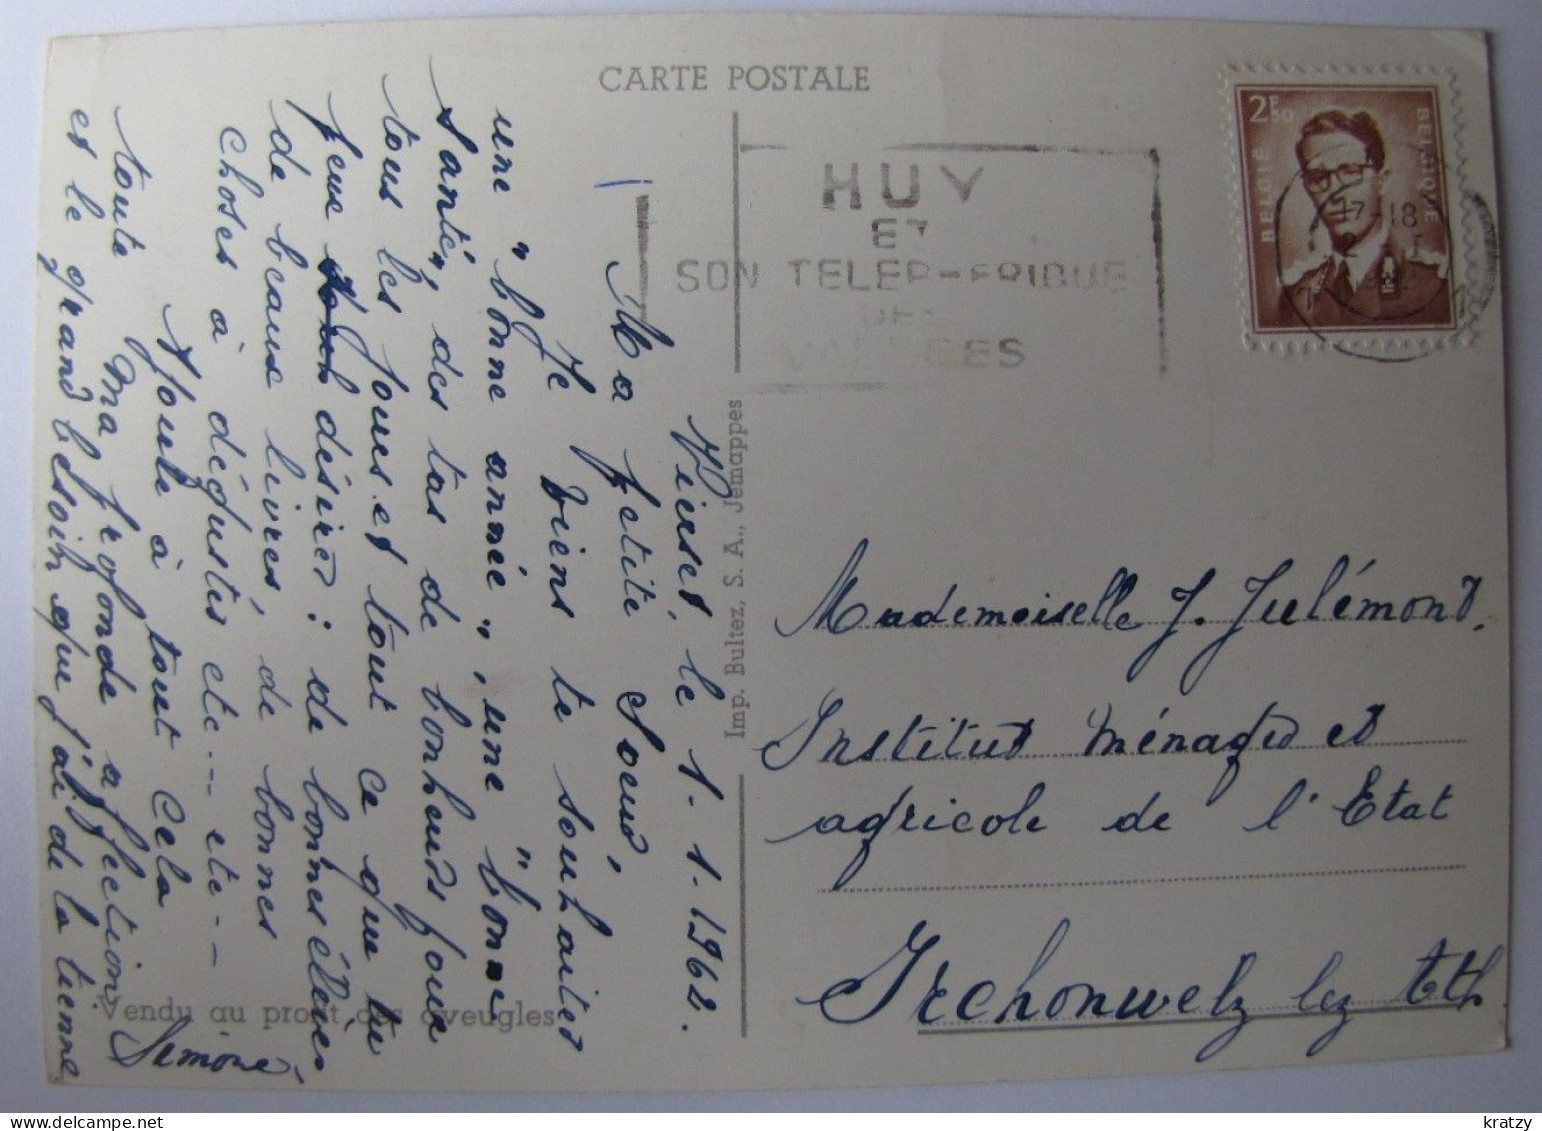 CARTE POSTALE
HUY
ET
SON TELEP-ERIQUE
DES
VALLEES
2F50
BELGIË
BELGIQUE
17-18
Vierset, le 1.1.1962.
Ma petite Soeur,
Je viens te souhaiter
une "bonne année", une "bonne
santé", des tas de bonheurs pour
tous les jours et tout ce que tu
peux désirer : de bonnes élèves
de beaux livres, de bonnes
choses à déguster etc--- etc---
Ajoute à tout cela
toute ma profonde affection
et le grand besoin que j'ai de la tienne
Simone.
Vendu au profit des aveugles
Imp. Bultez, S. A., Jemappes
Mademoiselle J. Julémont.
Institut ménager et
agricole de l'Etat
Irchonwelz lez Ath
kratzy